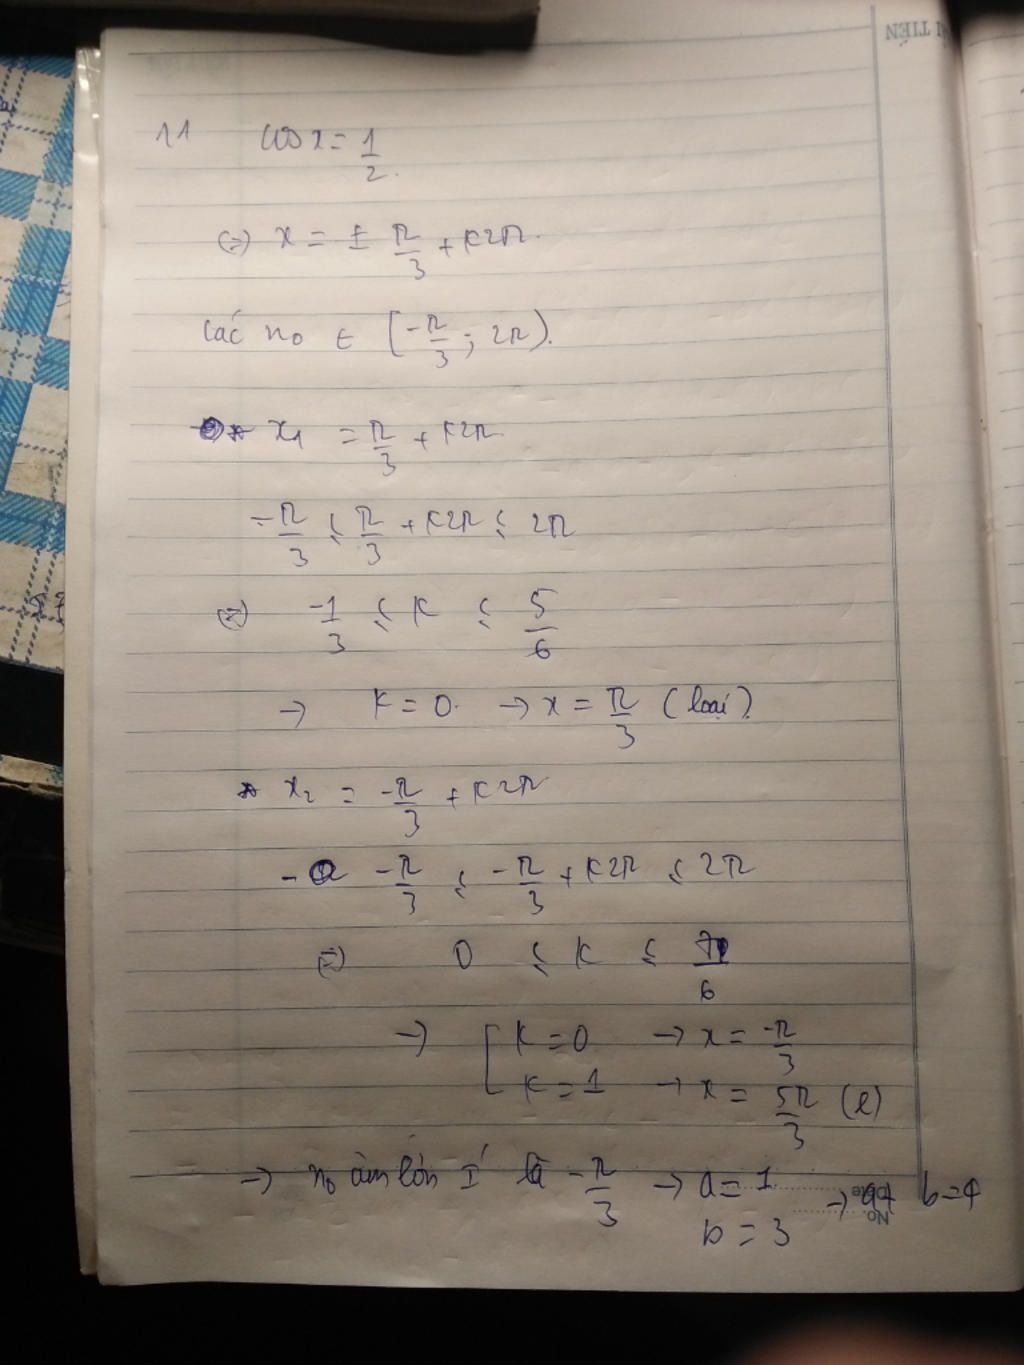 11 cos x = 1/2.
(=) x = ± π/3 + k2π.
Các n0 ∈ [-π/3; 2π).
* x1 = π/3 + k2π.
-π/3 ≤ π/3 + k2π ≤ 2π
(=) -1/3 ≤ k ≤ 5/6
→ k = 0. → x = π/3 (loại).
* x2 = -π/3 + k2π
- -π/3 ≤ -π/3 + k2π ≤ 2π
(=) 0 ≤ k ≤ 7/6
→ [ k = 0 → x = -π/3
k = 1 → x = 5π/3 (l)
→ n0 âm lớn I' là -π/3 → a = 1 → a+ b = 4
b = 3
No
Date
ẢI TIẾN